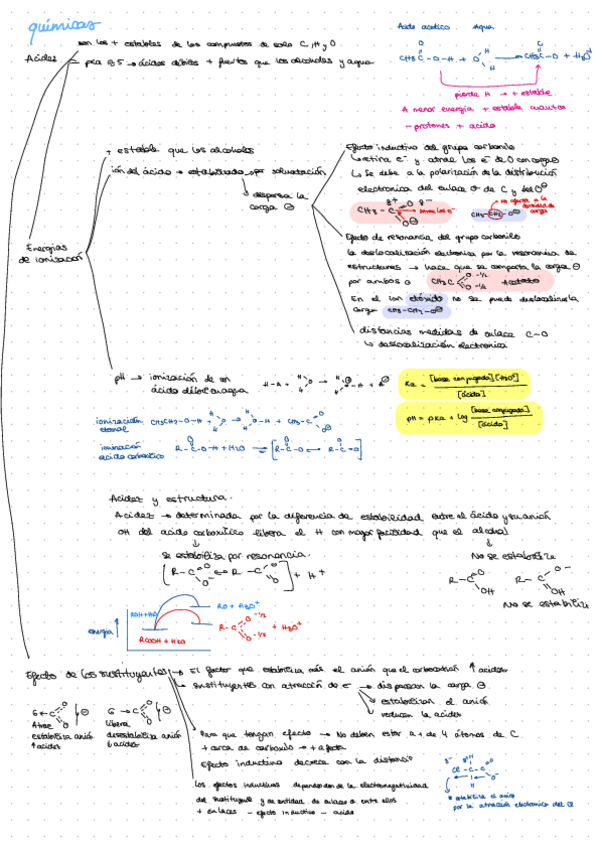 químicas
son los + estables de los compuestos de solo C, H y O
Acidez
pka 3,5 → ácidos débiles + fuertes que los alcoholes y agua
Ácido acético Agua
CH3C-O-H + O → CH3C-O + H3O+
pierde H → + estable
A menor energía + estable cuantos
- protones + acido
+ estable que los alcoholes
ión del ácido → estabilizado por solvatación
dispersa la
carga ⊖
Energías
de ionización
Efecto inductivo del grupo carbonilo
↳ retira e- y atrae los e- de O con carga
↳ Se debe a la polarización de la distribución
electronica del enlace σ de C y del O
δ+ O δ-
CH3 - C
O⊖
no efecto a la
densidad de
carga
CH3-CH2-O⊖
Efecto de resonancia del grupo carbonilo
la deslocalización electronica por la resonancia de
estructuras → hace que se comparta la carga ⊖
por ambos O
CH3C O -1/2 O -1/2 Acetato
En el ion etóxido no se puede deslocalizar la
carga CH3-CH2-O⊖
distancias medidas de enlace C-O
↳ deslocalización electronica
pH → ionización de un
ácido débil en agua
Ka = [base conjugada][H3O+] / [ácido]
pH = pKa + log [base conjugada] / [ácido]
ionización
etanol
CH3CH2-O-H +
ionización
ácido carboxílico
R-C-O-H + H2O
Acidez y estructura.
Acidez → determinada por la diferencia de estabilidad entre el ácido y su anión
OH del acido carboxílico libera el H con mayor facilidad que el alcohol
Se estabiliza por resonancia.
No se estabiliza
+ H+
No se estabiliza
energía
ROH + H2O
RO + H3O+
RCOOH + H2O
R-C O -1/2 O -1/2 + H3O+
Efecto de los sustituyentes → El factor que estabiliza más el anión que el carboxílico ↑ acidez
→ Sustituyentes con atracción de e- → dispersan la carga ⊖
→ estabilizan el anión
reducen la acidez
G←C O O ⊖
G→C O O ⊖
Atrae
estabiliza anión
↑ acidez
libera
desestabiliza anión
↓ acidez
Para que tengan efecto → No deben estar a + de 4 átomos de C.
+ cerca de carboxilo → + afecta
Efecto inductivo decrece con la distancia
los efectos inductivos dependen de la electronegatividad
del sustituyente y cantidad de enlaces σ entre ellos
+ enlaces - efecto inductivo - acido
estabiliza el anión
por la atracción electronica del Cl